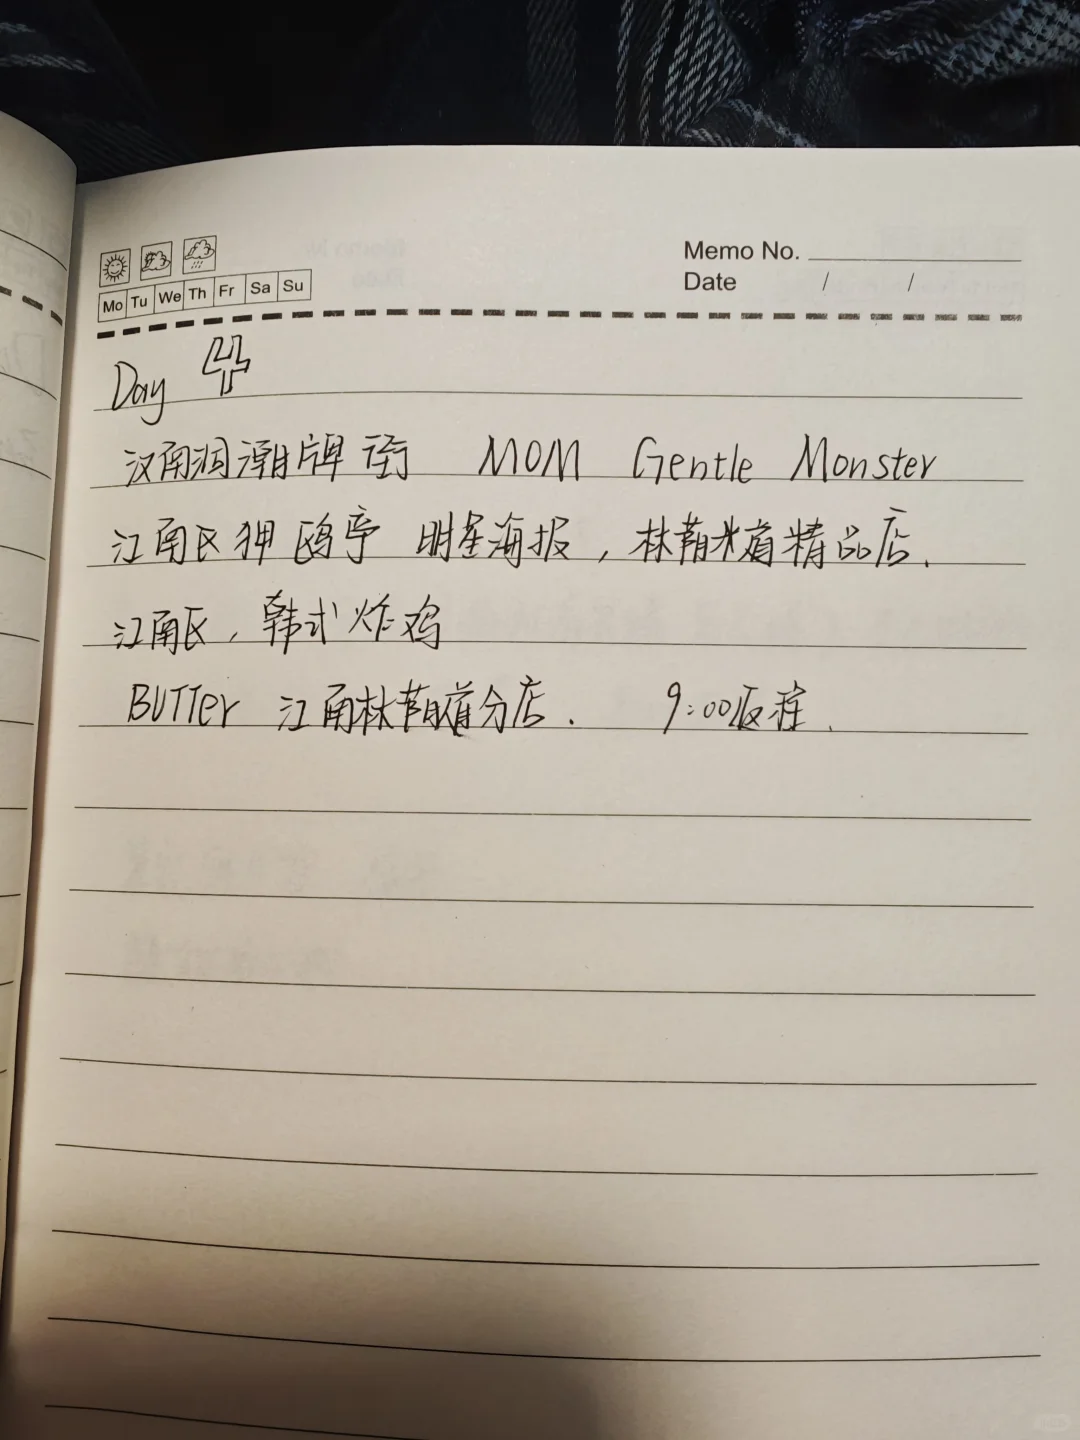 Memo No.
Date / /
Mo Tu We Th Fr Sa Su
Day 4
汉南洞潮牌街 MOM Gentle Monster
江南区狎鸥亭 明星海报，林荫道精品店.
江南区，韩式炸鸡
BUTTER 江南林荫道分店. 9:00返程.